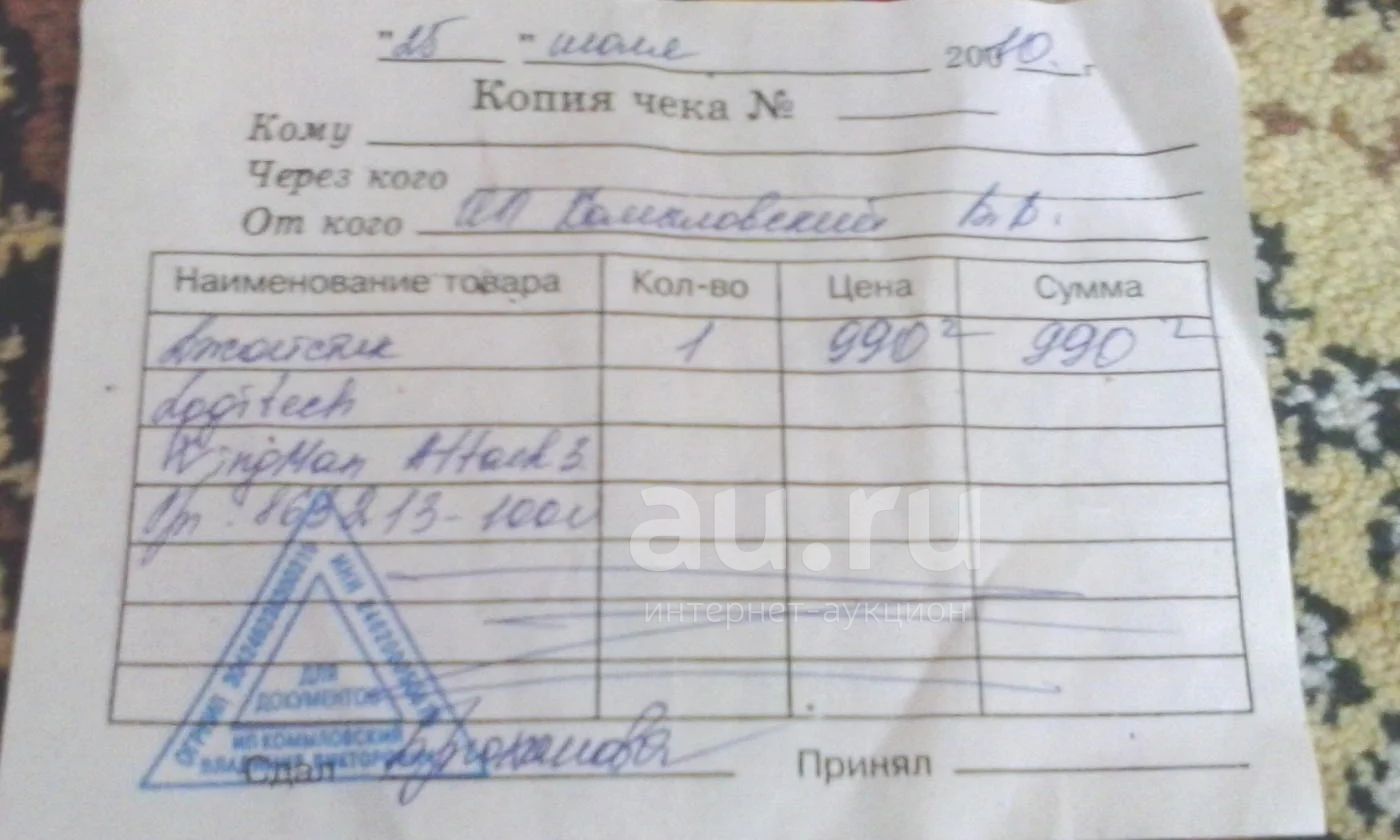 "25" июля 2010. г.
Копия чека №
Кому
Через кого
От кого ИП Комыловский В.В.
Наименование товара Кол-во Цена Сумма
Джойстик 1 990 990
Logitech
WingMan Attack 3
au.ru
интернет-аукцион
ИНН
ОГРНИП
ДЛЯ
ДОКУМЕНТОВ
ИП КОМЫЛОВСКИЙ
Сдал
Принял